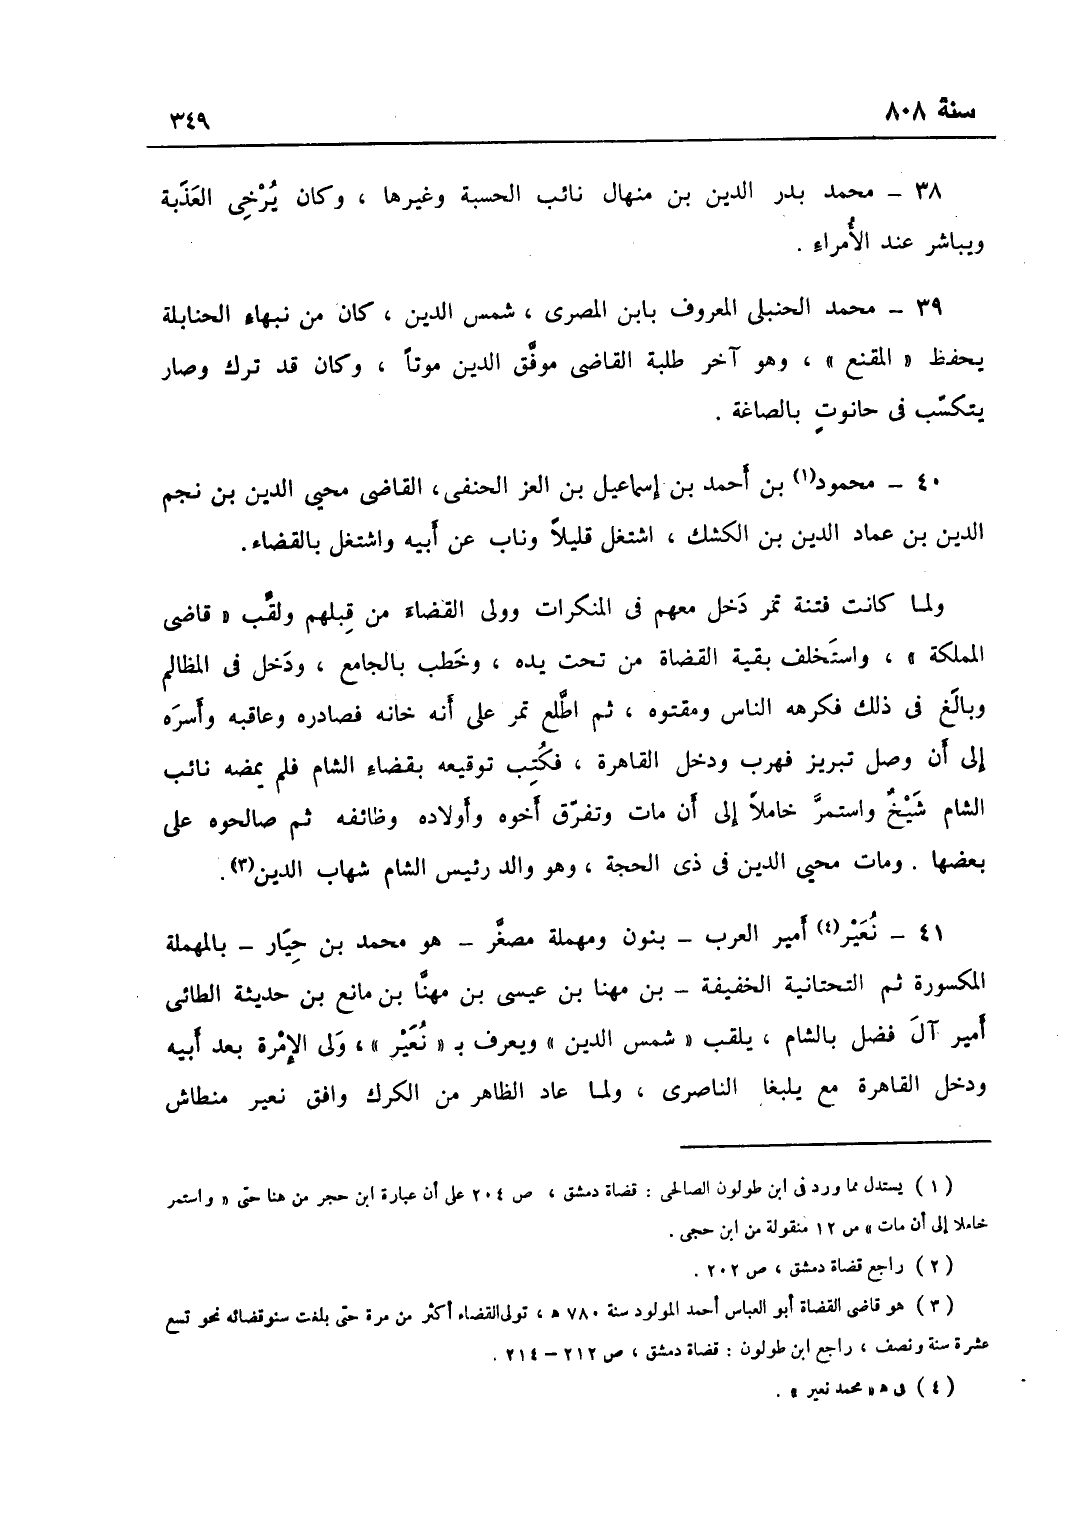 سنة ٨٠٨
٣٤٩
٣٨ ـ محمد بدر الدين بن منهال نائب الحسبة وغيرها ، وكان يُرْخِى العَذَبة
ويباشر عند الأُمراء .
٣٩ ـ محمد الحنبلى المعروف بابن المصرى ، شمس الدين ، كان من نبهاء الحنابلة
يحفظ « المقنع » ، وهو آخر طلبة القاضى موفَّق الدين موتاً ، وكان قد ترك وصار
يتكسّب فى حانوتٍ بالصاغة .
٤٠ ـ محمود(١) بن أَحمد بن إسماعيل بن العز الحنفى، القاضى محيى الدين بن نجم
الدين بن عماد الدين بن الكشك ، اشتغل قليلاً وناب عن أَبيه واشتغل بالقضاء.
ولما كانت فتنة تمر دَخل معهم فى المنكرات وولى القضاءَ من قِبلهم ولقَّب « قاضى
المملكة » ، واستَخلف بقية القضاة من تحت يده ، وخَطب بالجامع ، ودَخل فى المظالم
وبالَغ فى ذلك فكرهه الناس ومقتوه ، ثم اطَّلع تمر على أَنه خانه فصادره وعاقبه وأَسرَه
إلى أَن وصل تبريز فهرب ودخل القاهرة ، فكُتِب توقيعه بقضاء الشام فلم يمضه نائب
الشام شَيْخٌ واستمرَّ خاملاً إلى أَن مات وتفرّق أَخوه وأَولاده وظائفه ثم صالحوه على
بعضها . ومات محيى الدين فى ذى الحجة ، وهو والد رئيس الشام شهاب الدين(٣).
٤١ ـ نُعَيْر(٤) أَمير العرب ـ بنون ومهملة مصغَّر ـ هو محمد بن حِيَار ـ بالمهملة
المكسورة ثم التحتانية الخفيفة ـ بن مهنا بن عيسى بن مهنَّا بن مانع بن حديثة الطائى
أَمير آلَ فضل بالشام ، يلقب « شمس الدين » ويعرف بـ « نُعَيْر » ، وَلى الإِمْرة بعد أَبيه
ودخل القاهرة مع يلبغا الناصرى ، ولما عاد الظاهر من الكرك وافق نعير منطاش
(١) يستدل مما ورد فى ابن طولون الصالحى : قضاة دمشق ، ص ٢٠٤ على أن عبارة ابن حجر من هنا حتى « واستمر
خاملا إلى أن مات » ص ١٢ منقولة من ابن حجى .
(٢) راجع قضاة دمشق ، ص ٢٠٢ .
(٣) هو قاضى القضاة أبو العباس أحمد المولود سنة ٧٨٠ هـ ، تولى القضاء أكثر من مرة حتى بلغت سنو قضائه نحو تسع
عشرة سنة ونصف ، راجع ابن طولون : قضاة دمشق ، ص ٢١٢ – ٢١٤ .
(٤) فى هـ « محمد نعير » .